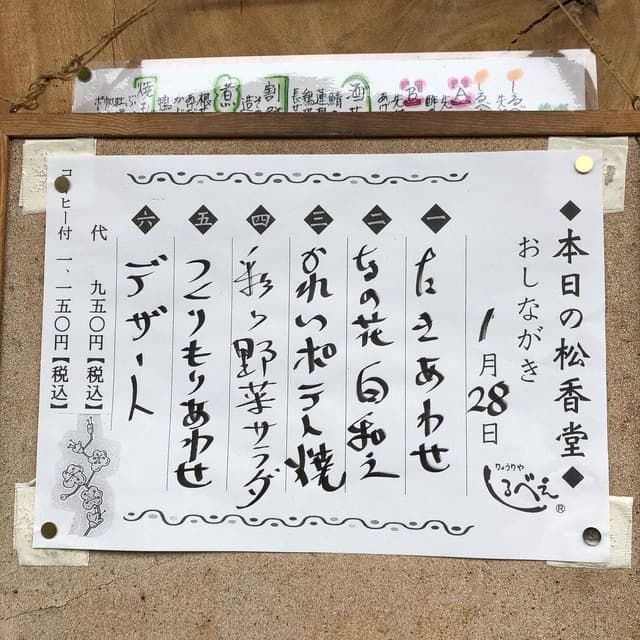 ◆本日の松香堂◆
おしながき
1月28日
りょうりや
しるべえ®
一 たきあわせ
二 なの花白和え
三 かれいポテト焼
四 彩り野菜サラダ
五 つくりもりあわせ
六 デザート
代 九五〇円【税込】
コーヒー付 一、一五〇円【税込】